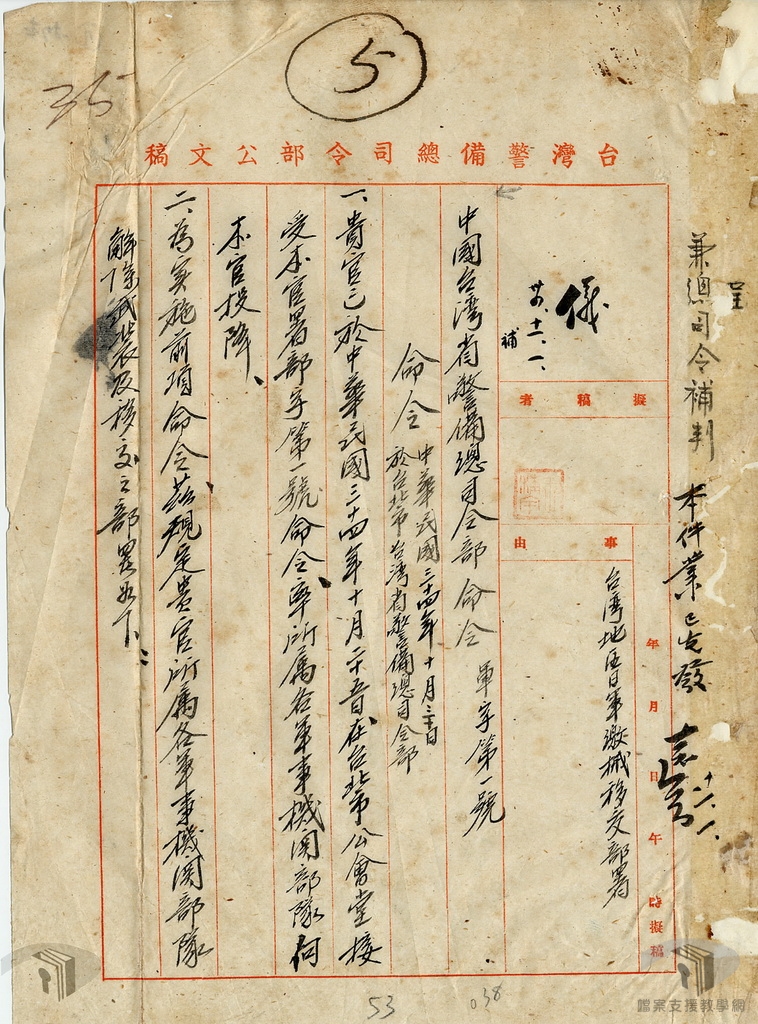 5
35
台灣警備總司令部公文稿
呈
兼總司令補判
本件業已先發
十一、一、
年 月 日 午 時擬稿
事由
台湾地区日軍繳械移交部署
擬稿者
儀
十一、一、
補
中國台湾省警備總司令部命令 軍字第一號
命令
中華民國三十四年十月三十日
於台北市台湾省警備總司令部
一、貴官已於中華民國三十四年十月二十五日在台北市公會堂接
受本官署部字第一號命令率所属各軍事機関部隊向
本官投降、
二、為实施前項命令茲規定貴官所属各軍事機関部隊
解除武装及移交之部署如下：
53
038
檔案支援教學網